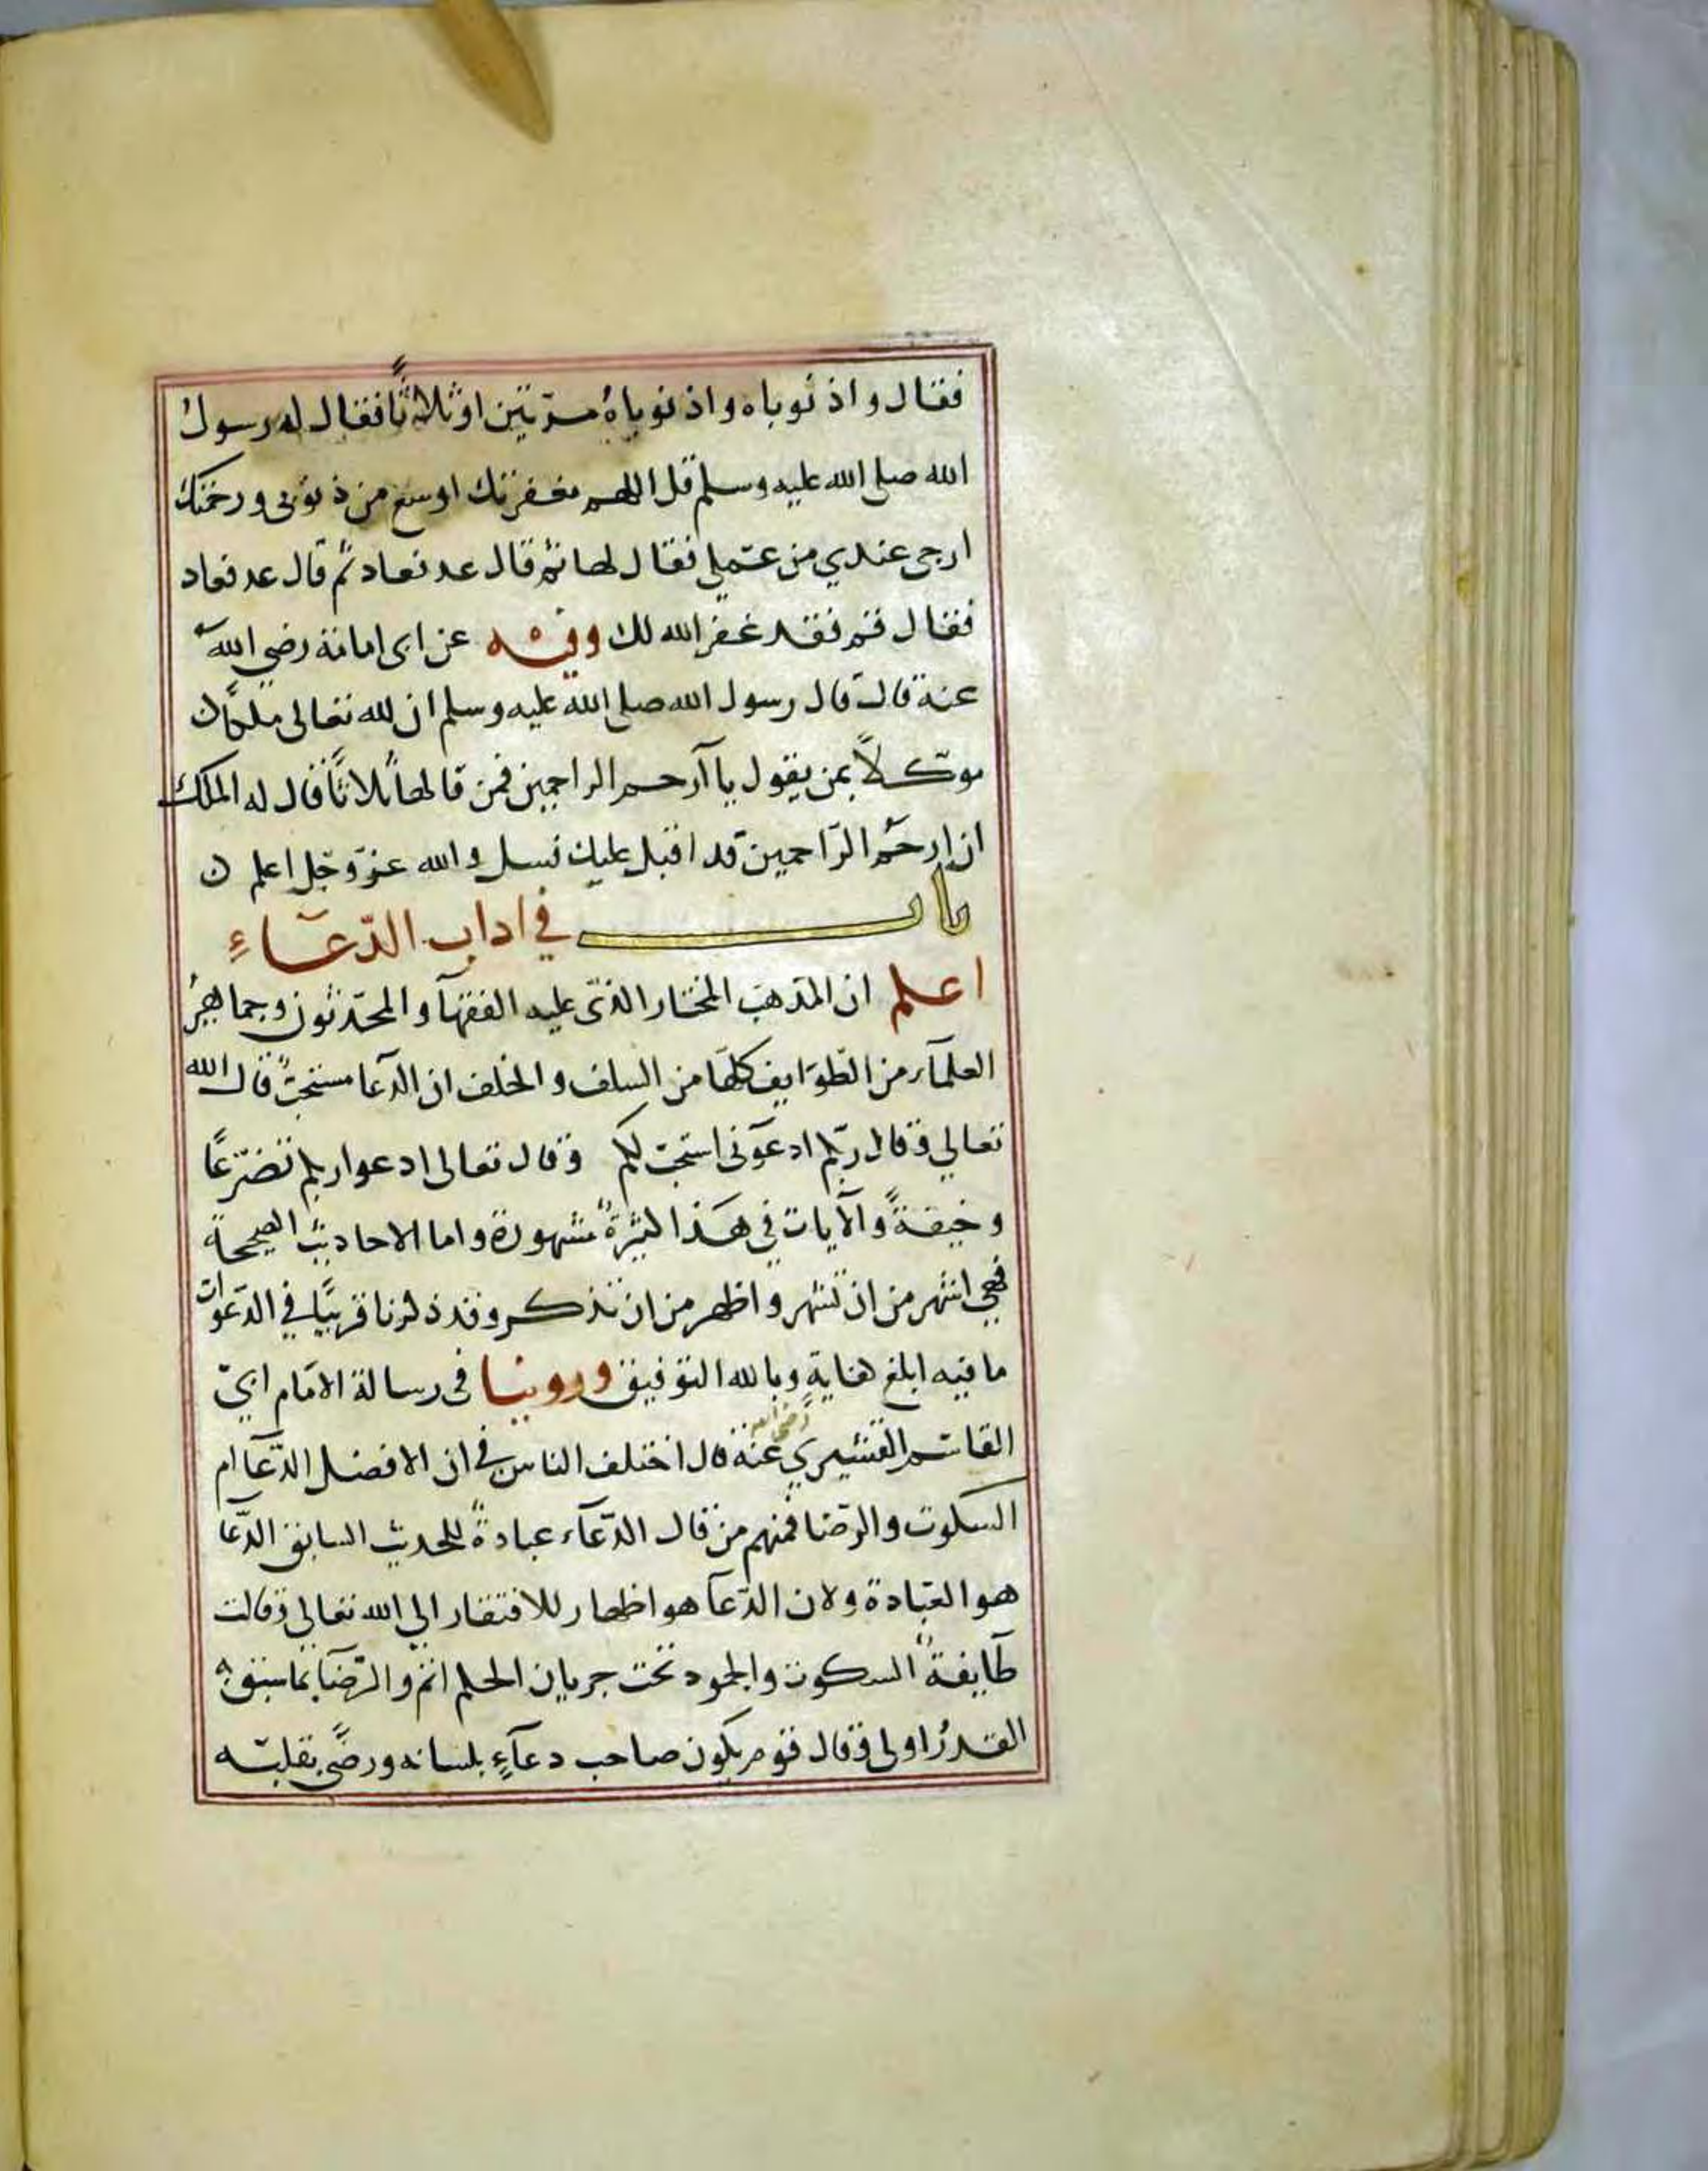 فقال واذنوباه واذنوباه مرّتين او ثلاثًا فقال له رسول
الله صلى الله عليه وسلم قل اللهم مغفرتك اوسع من ذنوبى ورحمتك
ارجى عندي من عملي فقالها ثم قال عد فعاد ثم قال عد فعاد
فقال قم فقد غفر الله لك وفيه عن ابى امامة رضي الله
عنه قال قال رسول الله صلى الله عليه وسلم ان لله تعالى ملكًا
موكلاً بمن يقول يا آرحم الراحمين فمن قالها ثلاثًا قال له الملك
ان ارحم الرّاحمين قد اقبل عليك فسل والله عزّ وجلّ اعلم ن
باب في اداب الدّعآء
اعلم ان المذهب المختار الذى عليه الفقهآ والمحدّثون وجماهير
العلمآء من الطّوايف كلّها من السلف والخلف ان الدّعا مستحبٌ قال الله
تعالي وقال ربّكم ادعوني استجب لكم وقال تعالى ادعوا ربكم تضرّعًا
وخيفةً والآيات في هذا كثيرةٌ مشهورة واما الاحاديث الصحيحة
فهي اشهر من ان تشهر واظهر من ان تذكر وقد ذكرنا قريبًا في الدّعوات
ما فيه ابلغ هناية وبالله التوفيق وروينا فى رسالة الامام ابي
القاسم القشيري رضي الله عنه قال اختلف الناس في ان الافضل الدّعآ ام
السكوت والرّضا فمنهم من قال الدّعآء عبادةٌ للحديث السابق الدّعا
هو العبادة ولان الدّعآ هو اظهار للافتقار الي الله تعالي وقالت
طآيفةٌ السكوت والجمود تحت جريان الحكم اتم والرّضا بما سبق به
القدر اولى وقال قوم يكون صاحب دعآءٍ بلسانه ورضًى بقلبه